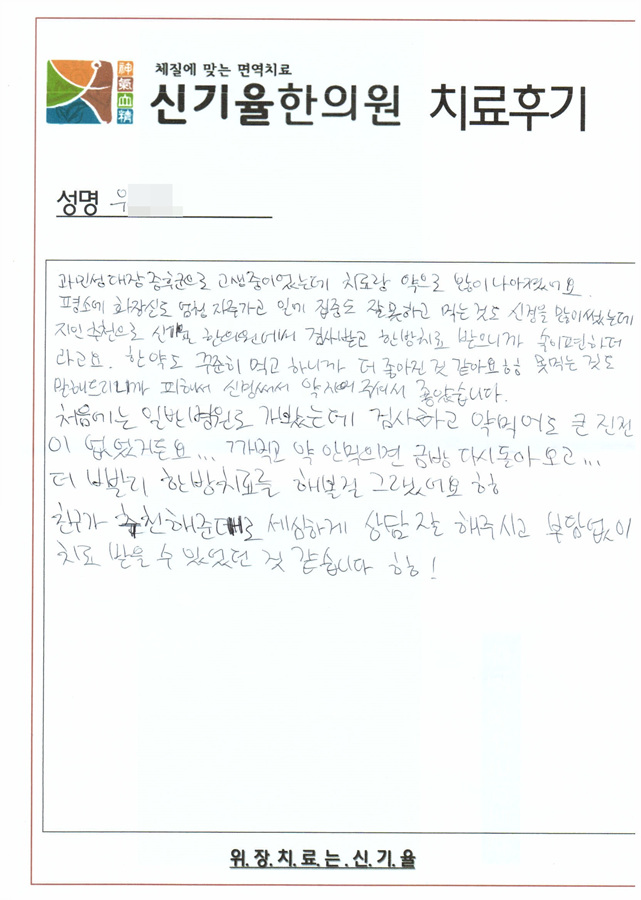 神氣血精
체질에 맞는 면역치료
신기율한의원 치료후기
성명 우
과민성대장증후군으로 고생중이었는데 치료랑 약으로 많이 나아졌어요.
평소에 화장실도 엄청 자주가고 일에 집중도 잘못하고 먹는것도 신경을 많이썼는데
지인추천으로 신기율 한의원에서 검사받고 한방치료 받으니까 속이편하더
라고요. 한약도 꾸준히 먹고 하니까 더 좋아진 것 같아요ㅎㅎ 못먹는 것도
말해드리니까 피해서 신경써서 약지어 주셔서 좋았습니다.
처음에는 일반병원도 가봤는데 검사하고 약먹어도 큰 진전
이 없었거든요... 까먹고 약 안먹으면 금방 다시돌아 오고...
더 빨리 한방치료를 해볼걸 그랬어요 ㅎㅎ
친구가 추천해준대로 세심하게 상담 잘 해주시고 부담없이
치료 받을 수 있었던 것 같습니다 ㅎㅎ!
위.장.치.료.는.신.기.율